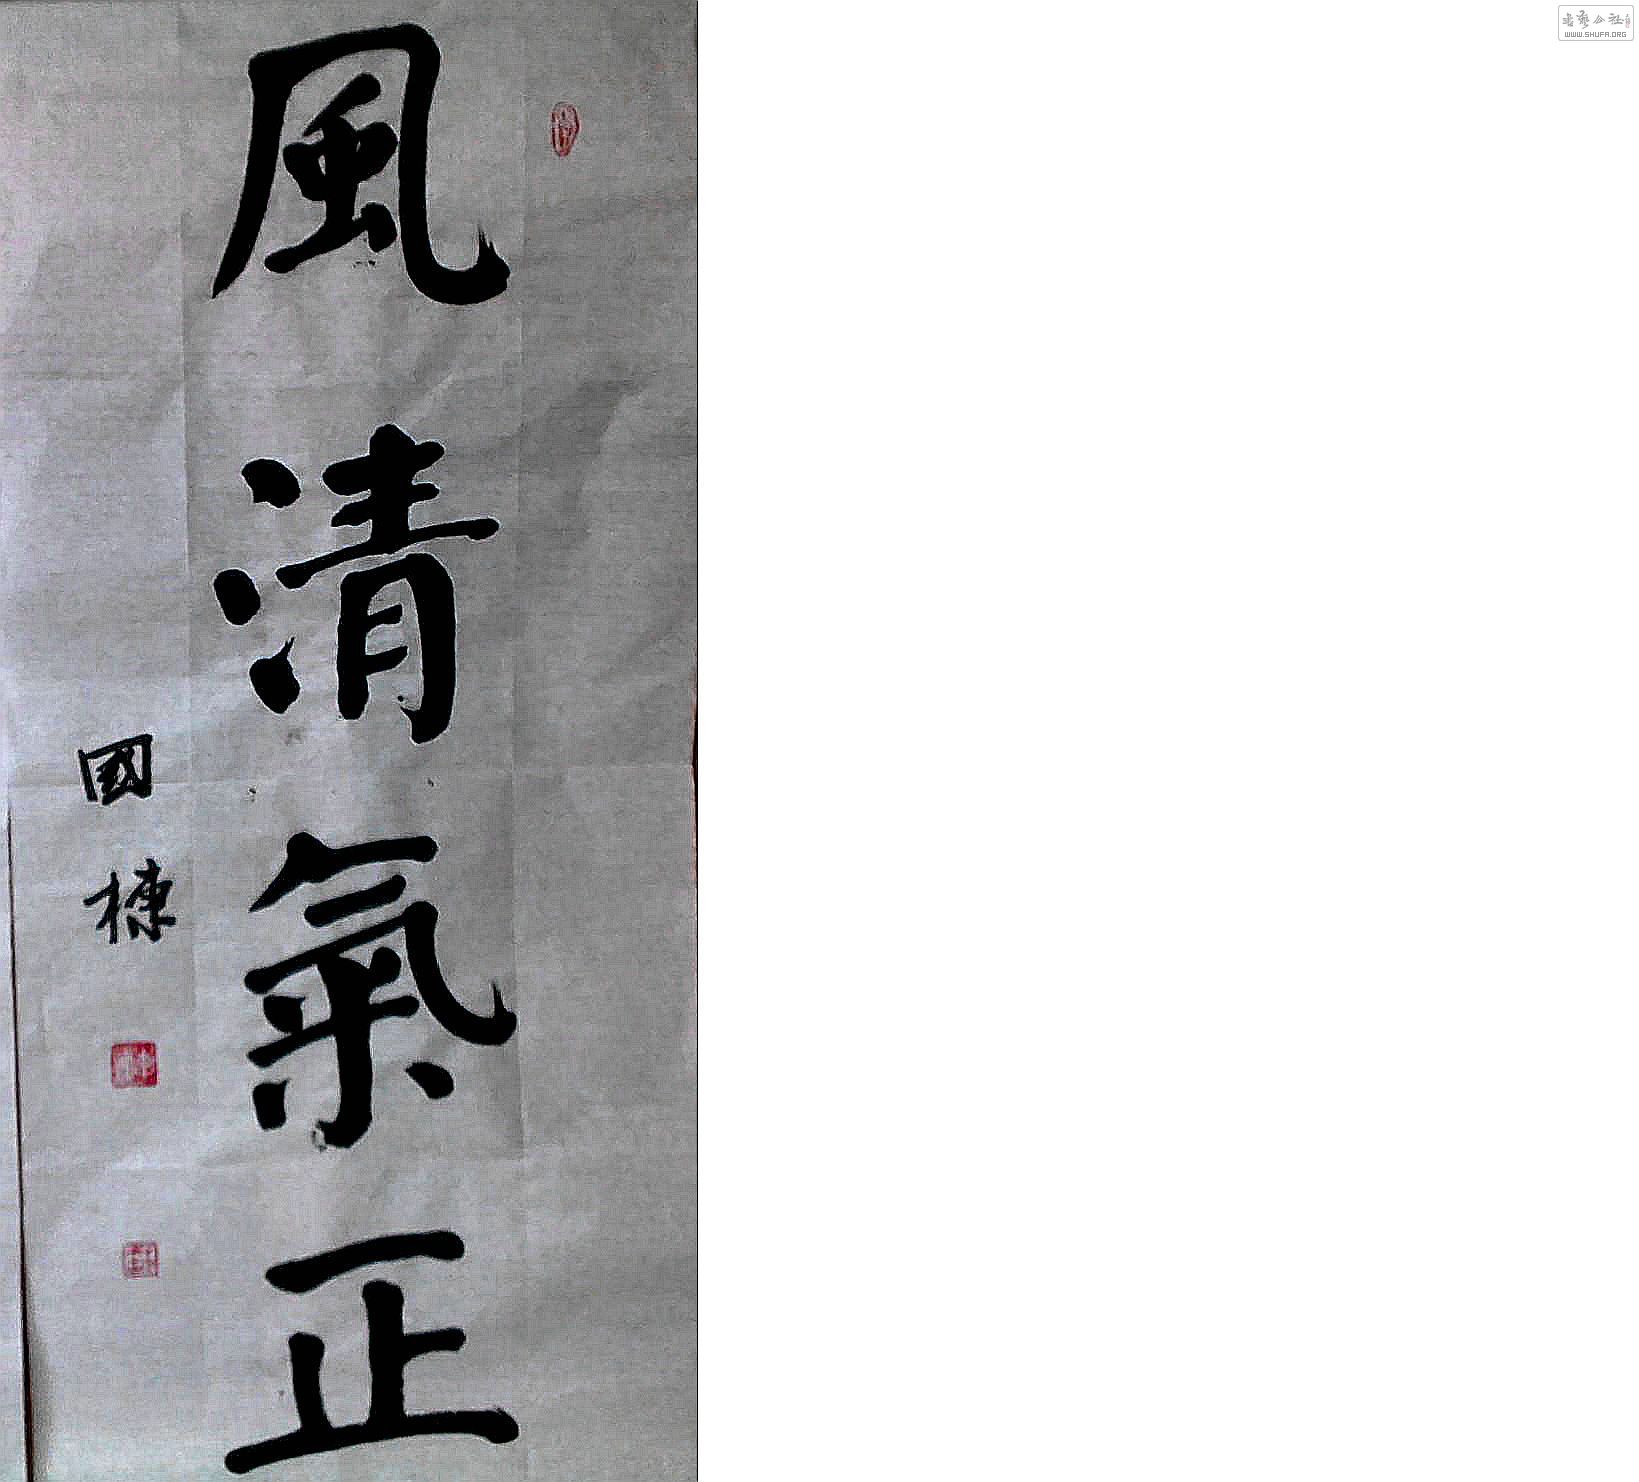 風清氣正
國棟
書藝公社
WWW.SHUFA.ORG